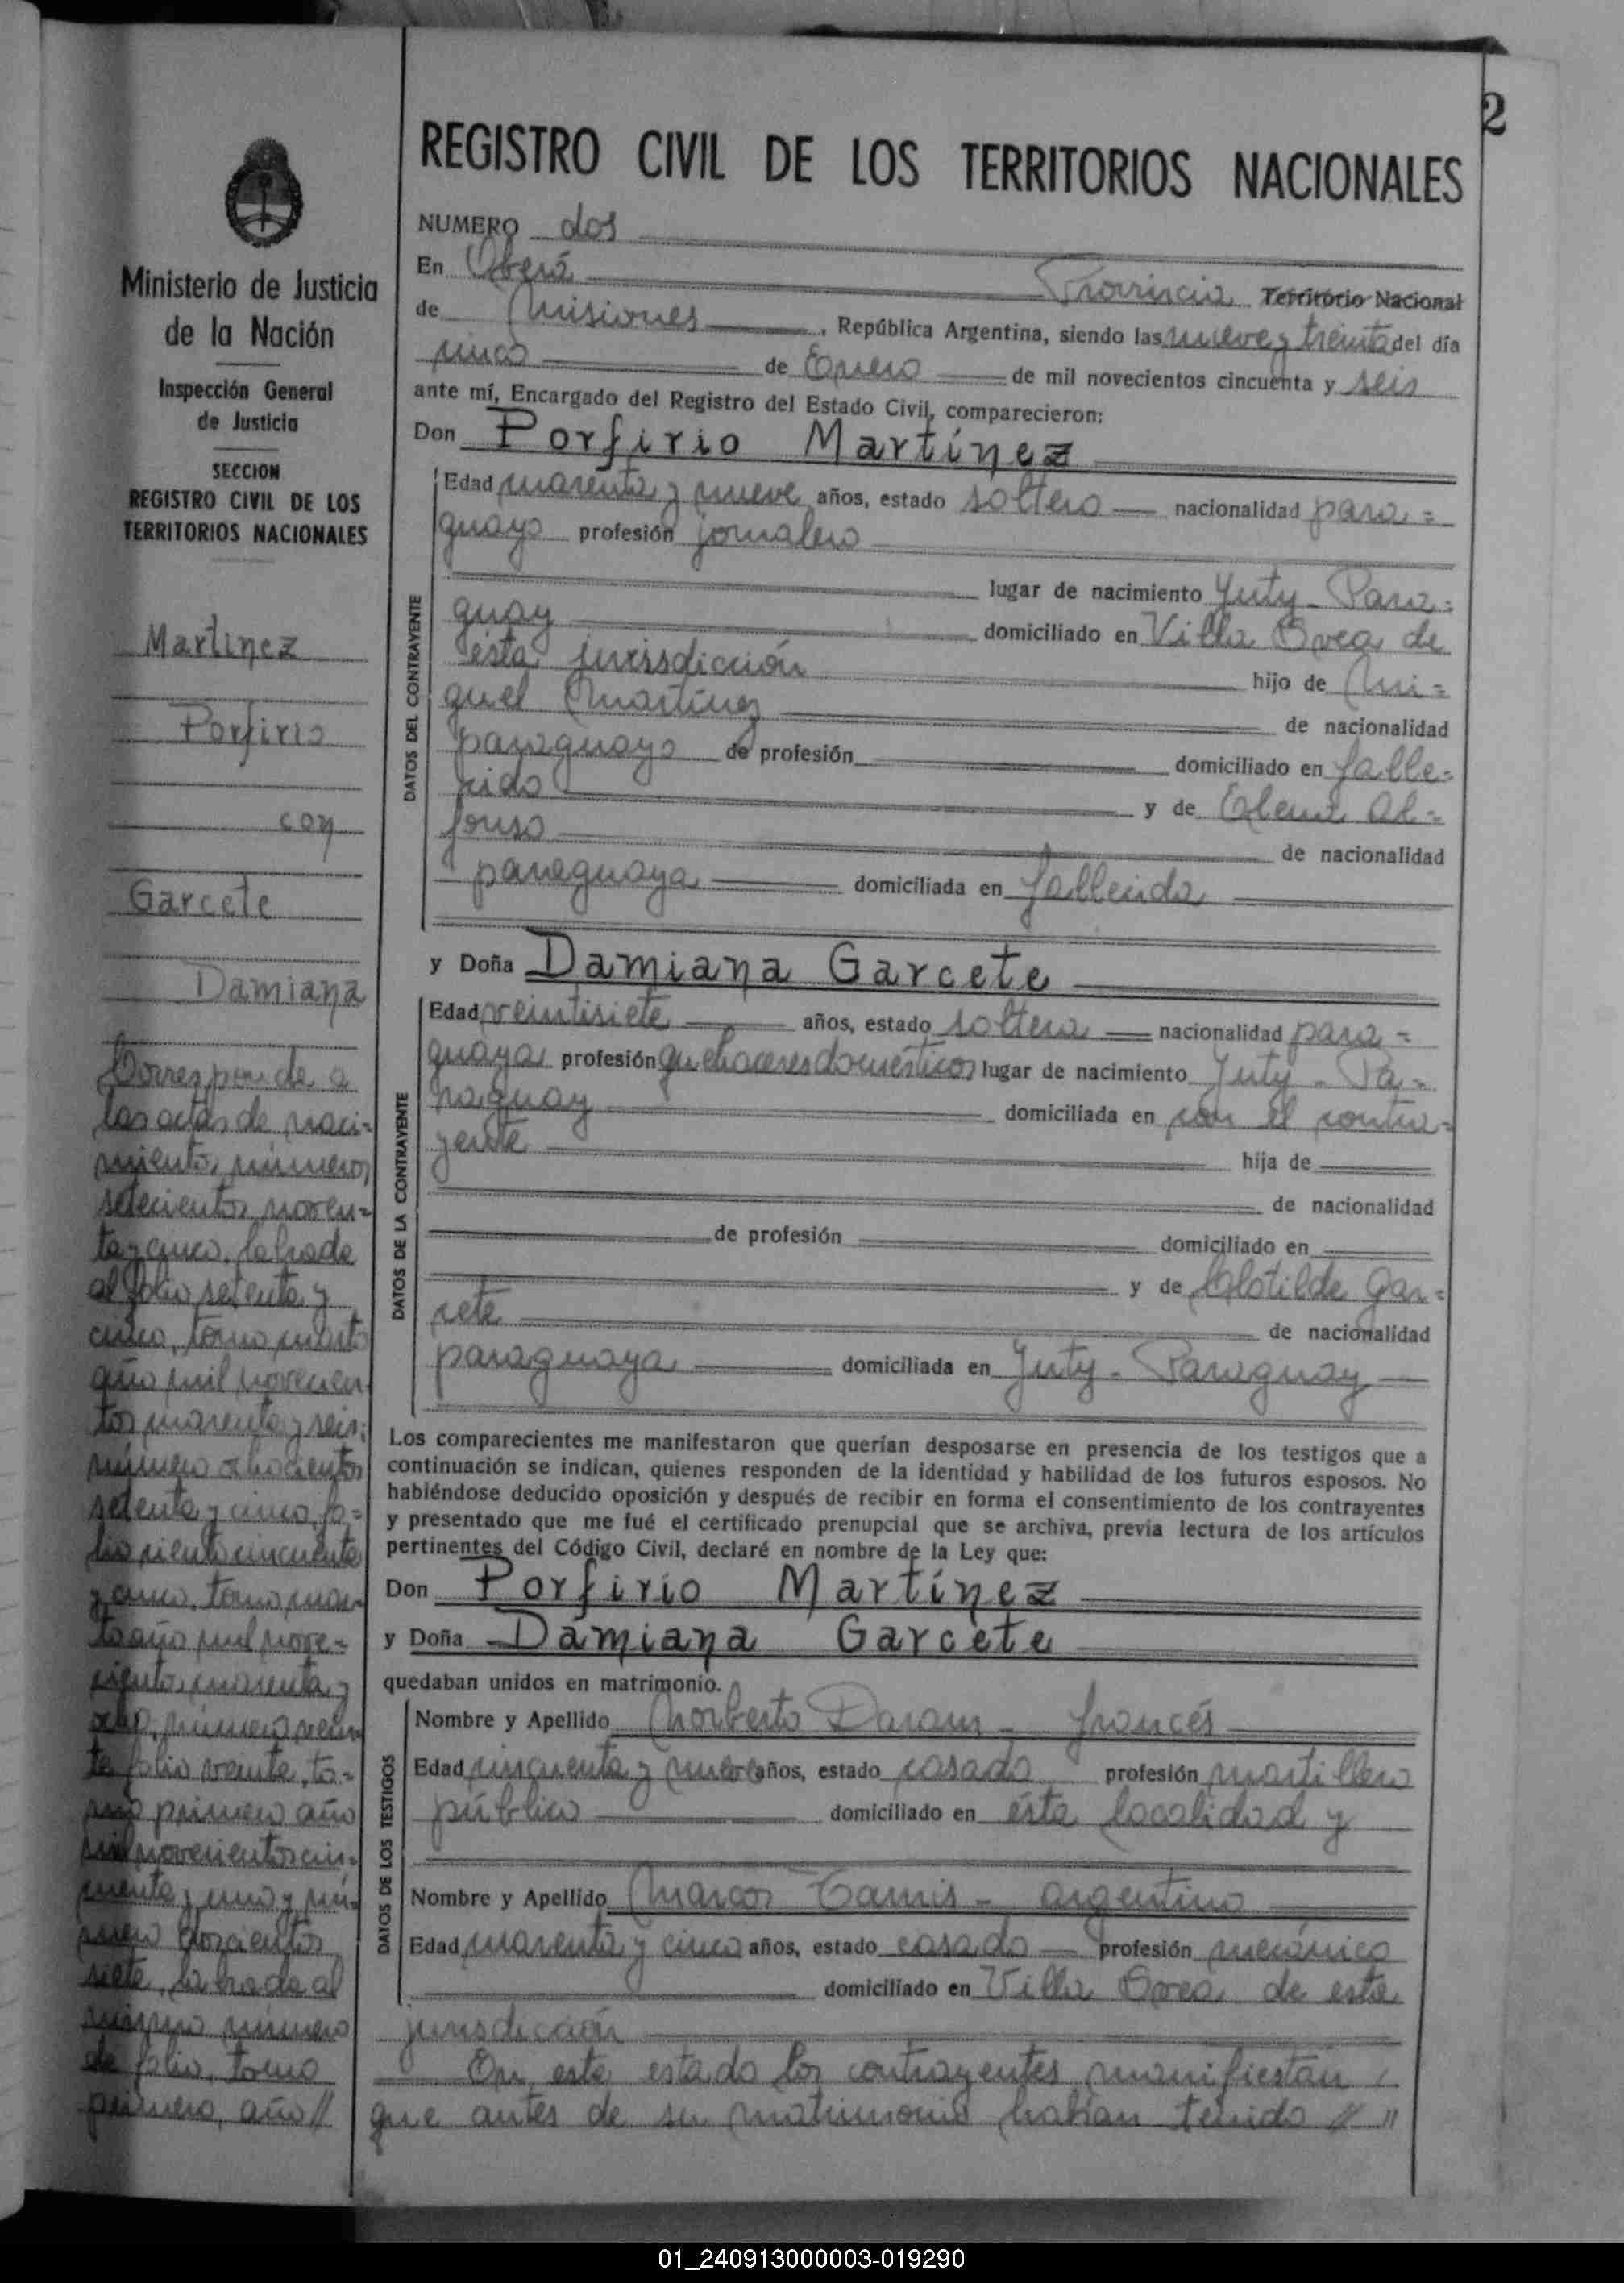 2
REGISTRO CIVIL DE LOS TERRITORIOS NACIONALES
NUMERO dos
En Oberá Provincia Territorio Nacional
de Misiones, República Argentina, siendo las nueve y treinta del día
cinco de Enero de mil novecientos cincuenta y seis
ante mí, Encargado del Registro del Estado Civil, comparecieron:
Don Porfirio Martínez
DATOS DEL CONTRAYENTE
Edad cuarenta y nueve años, estado soltero nacionalidad para=
guayo profesión jornalero
lugar de nacimiento Yuty - Para=
guay domiciliado en Villa Svea de
ésta jurisdicción hijo de Mi=
guel Martínez de nacionalidad
paraguayo de profesión domiciliado en falle=
cido y de Elena Al=
fonso de nacionalidad
paraguaya domiciliada en fallecida
y Doña Damiana Garcete
DATOS DE LA CONTRAYENTE
Edad veintisiete años, estado soltera nacionalidad para=
guaya profesión quehaceres domésticos lugar de nacimiento Yuty - Pa=
raguay domiciliada en con el contra=
yente hija de
de nacionalidad
de profesión domiciliado en
y de Clotilde Gar=
cete de nacionalidad
paraguaya domiciliada en Yuty - Paraguay
Los comparecientes me manifestaron que querían desposarse en presencia de los testigos que a
continuación se indican, quienes responden de la identidad y habilidad de los futuros esposos. No
habiéndose deducido oposición y después de recibir en forma el consentimiento de los contrayentes
y presentado que me fué el certificado prenupcial que se archiva, previa lectura de los artículos
pertinentes del Código Civil, declaré en nombre de la Ley que:
Don Porfirio Martínez
y Doña Damiana Garcete
quedaban unidos en matrimonio.
DATOS DE LOS TESTIGOS
Nombre y Apellido Norberto - francés
Edad cincuenta y nueve años, estado casado profesión martillero
público domiciliado en ésta localidad y
Nombre y Apellido Marcos - argentino
Edad cuarenta y cinco años, estado casado profesión mecánico
domiciliado en Villa Svea de esta
jurisdicción
En este estado los contrayentes manifiestan
que antes de su matrimonio habían tenido // "
Ministerio de Justicia
de la Nación
Inspección General
de Justicia
SECCION
REGISTRO CIVIL DE LOS
TERRITORIOS NACIONALES
Martinez
Porfirio
con
Garcete
Damiana
Corresponde a
las actas de naci=
miento, número
setecientos noven=
ta y cinco, labrada
al folio setenta y
cinco, tomo cuarto
año mil novecien
tos cuarenta y seis;
número ochocientos
setenta y cinco, fo=
lio ciento cincuenta
y cinco, tomo cuar=
to año mil nove=
cientos cuarenta y
ocho, número vein
te folio veinte, to=
mo primero año
mil novecientos cin=
cuenta y uno y nú=
mero doscientos
siete, labrada al
mismo número
de folio, tomo
primero, año //
01_240913000003-019290